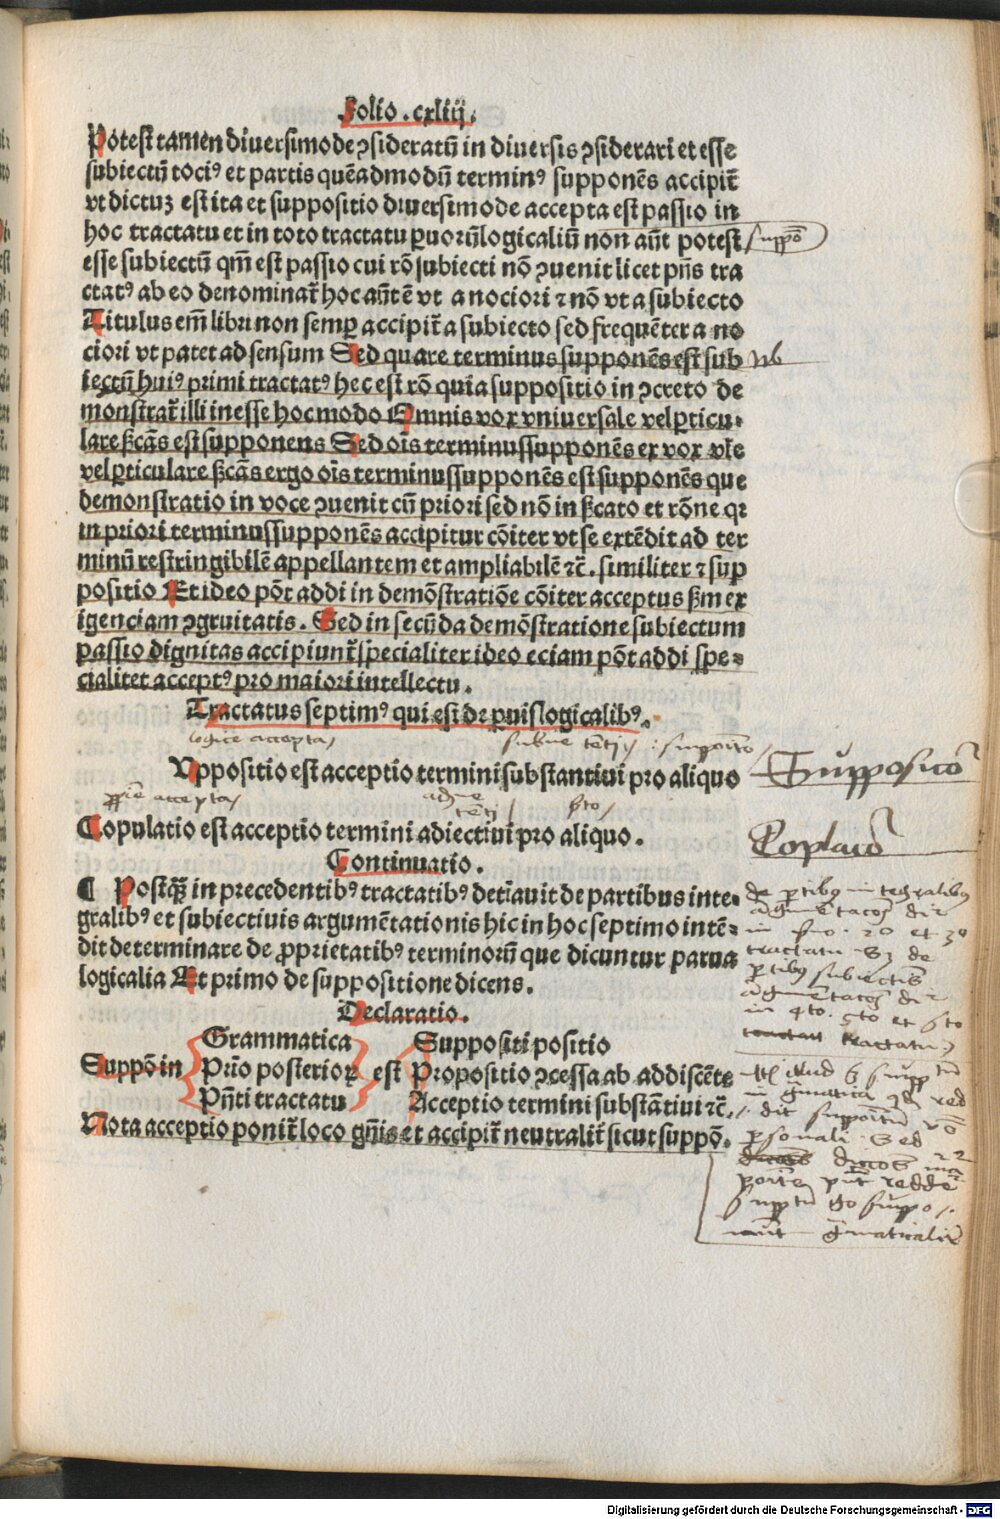 Folio . cxliij.
Potest tamen diuersimode ꝯsideratū in diuersis ꝯsiderari et esse
subiectū tociꝰ et partis quēadmodū terminꝰ supponēs accipit᷑
vt dictuʒ est ita et suppositio diuersimode accepta est passio in
hoc tractatu et in toto tractatu ꝑuoꝝ logicaliū non aūt potest
suppō
esse subiectū qm̄ est passio cui rō subiecti nō ꝯuenit licet pn̄s tra
ctatꝰ ab eo denominat᷑ hoc aūtē vt a nociori ⁊ nō vt a subiecto
Titulus em̄ libri non semꝑ accipit᷑ a subiecto sed frequēter a no
ciori vt patet ad sensum Sed quare terminus supponēs est sub
Nb
iectū huiꝰ primi tractatꝰ hec est rō quia suppositio in ꝯcreto de
monstrat᷑ illi inesse hoc modo Omnis vox vniuersale vel ꝑticu⸗
lare ßcās est supponens Sed oīs terminus supponēs ex vox vl̄e
vel ꝑticulare ßcās ergo oīs terminus supponēs est supponēs que
demonstratio in voce ꝯuenit cū priori sed nō in ßcato et rōne qꝛ
in priori terminus supponēs accipitur cōiter vt se extēdit ad ter
minū restringibilē appellantem et ampliabilē ⁊c̄. similiter ⁊ sup
positio Et ideo pōt addi in demōstratiōe cōiter acceptus ßm ex
igenciam ꝯgruitatis. Sed in secūda demōstratione subiectum
passio dignitas accipiunt᷑ specialiter ideo eciam pōt addi spe⸗
cialiter acceptꝰ pro maiori intellectu.
Tractatus septimꝰ qui est de ꝑuis logicalibꝰ.
logice accepta
Vppositio est acceptio termini substantiui pro aliquo
Suppositō
Copulatio est acceptio termini adiectiui pro aliquo.
Coplacō
Continuatio.
¶ Postq̄ꝫ in precedentibꝰ tractatibꝰ det̄iauit de partibus inte⸗
gralibꝰ et subiectiuis argumētationis hic in hoc septimo intē⸗
dit determinare de ꝓprietatibꝰ terminoꝝ que dicuntur parua
logicalia Et primo de suppositione dicens.
Declaratio.
Grammatica Suppositi positio
Suppō in Prio posterioꝝ est Propositio ꝯcessa ab addiscēte
Pn̄ti tractatu Acceptio termini substātiui ⁊c̄.
Nota acceptio ponit᷑ loco gn̄is et accipit᷑ neutralit᷑ sicut suppō.
Digitalisierung gefördert durch die Deutsche Forschungsgemeinschaft - DFG